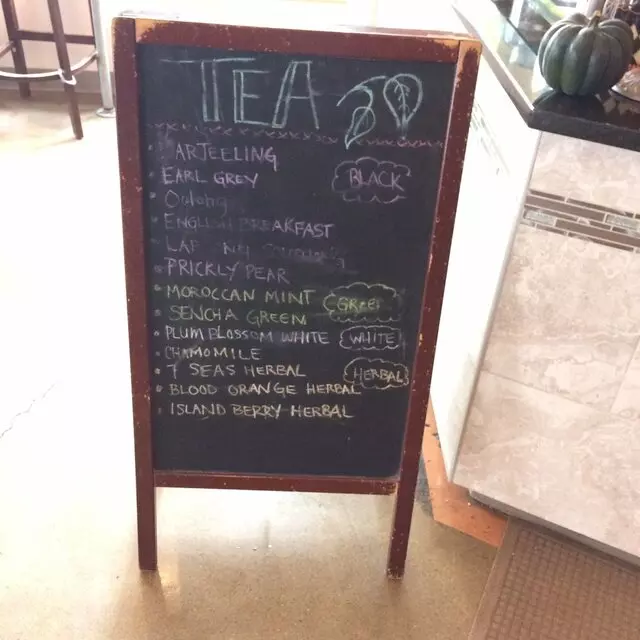 TEA
ARJEELING
EARL GREY
BLACK
Oolong
ENGLISH BREAKFAST
PRICKLY PEAR
MOROCCAN MINT
GREEN
SENCHA GREEN
PLUM BLOSSOM WHITE
WHITE
CHAMOMILE
7 SEAS HERBAL
HERBAL
BLOOD ORANGE HERBAL
ISLAND BERRY HERBAL